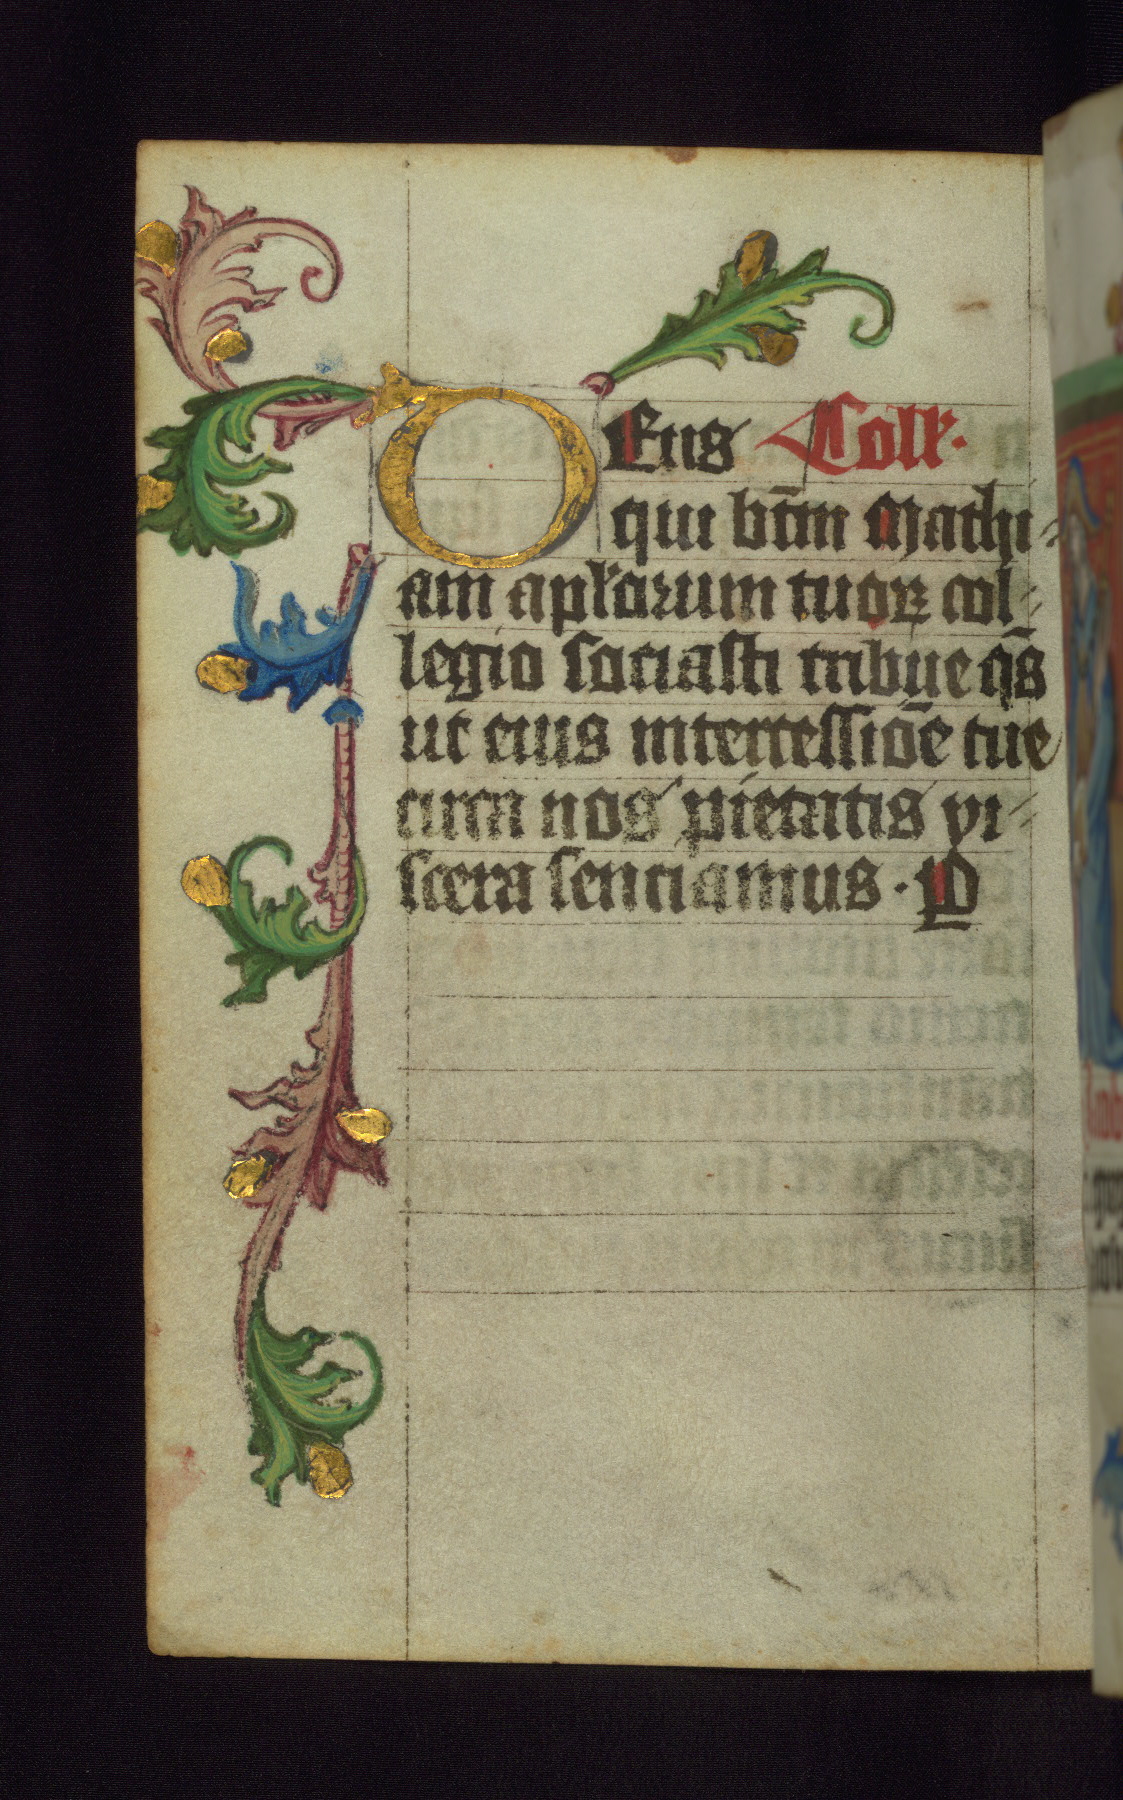 DEus Coll'.
qui btm Mathi-
am aplorum tuoꝝ col-
legio sociasti tribue qs
ut eius intercessiōe tue
circa nos pietatis vi-
scera senciamus. P